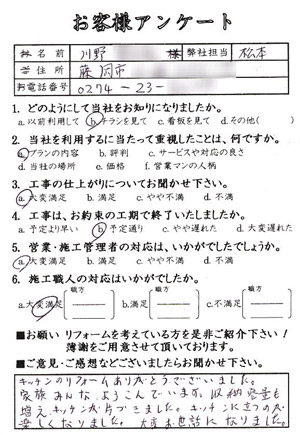 お客様アンケート
お名前 川野 様 弊社担当 松本
ご住所 藤岡市
お電話番号 0274-23-
1. どのようにして当社をお知りになりましたか。
a.以前利用して b.チラシを見て c.看板を見て d.その他( )
2. 当社を利用するに当たって重視したことは、何ですか。
a.プランの内容 b.評判 c.サービスや対応の良さ
d.当社の場所 e.価格 f.営業マンの人柄
3. 工事の仕上がりについてお聞かせ下さい。
a.大変満足 b.満足 c.やや不満 d.不満
4. 工事は、お約束の工期で終了いたしましたか。
a.予定より早い b.予定通り c.やや遅れた d.大変遅れた
5. 営業・施工管理者の対応は、いかがでしたでしょうか。
a.大変満足 b.満足 c.やや不満 d.不満
6. 施工職人の対応はいかがでしたか。
a.大変満足 職方 b.満足 職方 c.不満足 職方
■お願い リフォームを考えている方を是非ご紹介下さい!
薄謝をご用意させて頂いております。
■ご意見・ご感想などございましたらお聞かせ下さい。
キッチンのリフォームありがとうございました。
家族みんなよろこんでいます。収納容量も
増えキッチンが片づきました。キッチンに立つのが
楽しくなりました。大変お世話になりました。